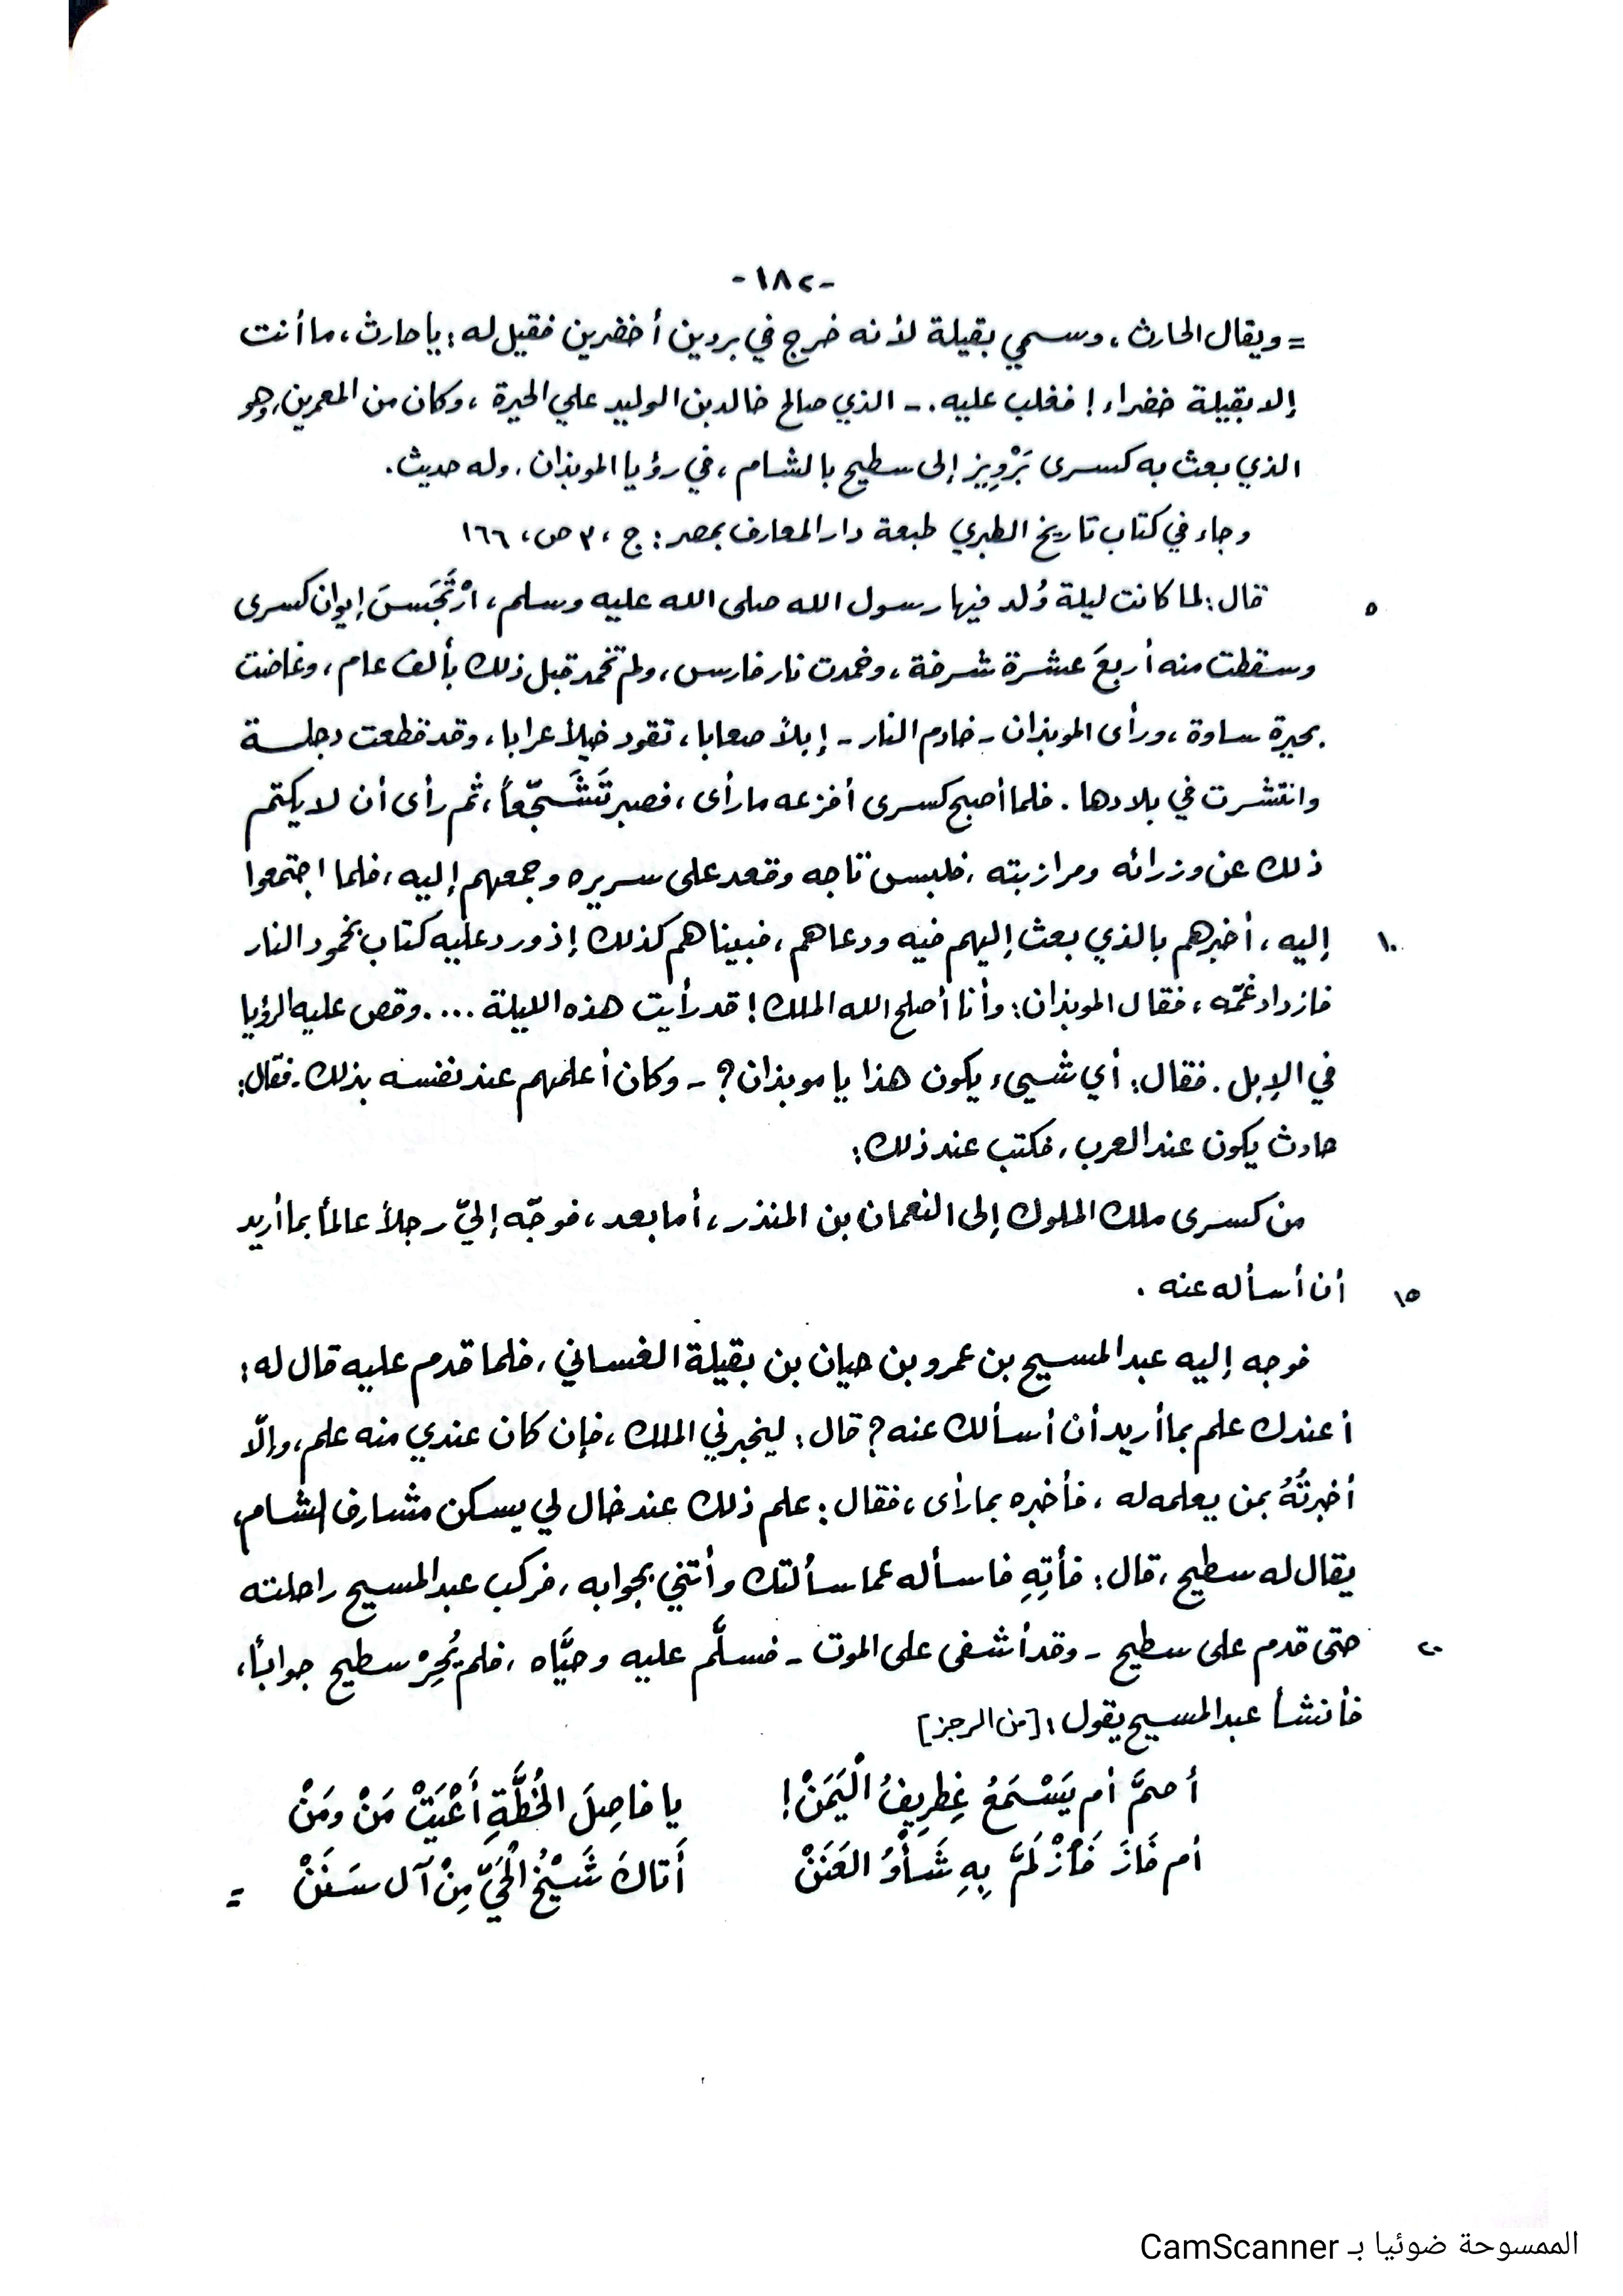 -١٨٢-
= ويقال الحارث ، وسمي بقيلة لأنه خرج في بردين أخضرين فقيل له : يا حارث ، ما أنت
إلا بقيلة خضراء ! فغلب عليه . - الذي صالح خالد بن الوليد علي الحيرة ، وكان من المعمرين ، وهو
الذي بعث به كسرى بَرْوِيز إلى سطيح بالشام ، في رؤيا الموبذان . وله حديث .
وجاء في كتاب تاريخ الطبري طبعة دار المعارف بمصر : ج ، ٣ ص ، ١٦٦
٥ قال : لما كانت ليلة وُلد فيها رسول الله صلى الله عليه وسلم ، ارْتَجَسَ إيوان كسرى
وسقطت منه أربعَ عشرة شرفة ، وخمدت نار فارس ، ولم تخمد قبل ذلك بألف عام ، وغاضت
بحيرة ساوة ، ورأى الموبذان - خادم النار - إبلاً صعابا ، تقود خيلاً عرابا ، وقد قطعت دجلة
وانتشرت في بلادها . فلما أصبح كسرى أفزعه ما رأى ، فصبر تَشَجّعاً ، ثم رأى أن لا يكتم
ذلك عن وزرائه ومرازبته ، فلبس تاجه وقعد على سريره وجمعهم إليه ، فلما اجتمعوا
١٠ إليه ، أخبرهم بالذي بعث إليهم فيه ودعاهم ، فبيناهم كذلك إذ ورد عليه كتاب بخمود النار
فازداد غمّه ، فقال الموبذان : وأنا أصلح الله الملك ! قد رأيت هذه الليلة .... وقص عليه الرؤيا
في الإبل . فقال : أي شيىء يكون هذا يا موبذان ؟ - وكان أعلمهم عند نفسه بذلك . فقال :
حادث يكون عند العرب ، فكتب عند ذلك :
من كسرى ملك الملوك إلى النعمان بن المنذر ، أما بعد ، فوجّه إليّ رجلاً عالماً بما أريد
١٥ أن أسأله عنه .
فوجه إليه عبد المسيح بن عمرو بن حيان بن بقيلة الغساني ، فلما قدم عليه قال له :
أعندك علم بما أريد أن أسألك عنه ؟ قال : ليخبرني الملك ، فإن كان عندي منه علم ، وإلّا
أخبرتُهُ بمن يعلمه له ، فأخبره بما رأى ، فقال : علم ذلك عند خال لي يسكن مشارف الشام ،
يقال له سطيح ، قال : فأتِهِ فاسأله عما سألتك وأتني بجوابه ، فركب عبد المسيح راحلته
٢٠ حتى قدم على سطيح - وقد أشفى على الموت - فسلَّم عليه وحيَّاه ، فلم يُحِرْ سطيح جواباً ،
فأنشأ عبد المسيح يقول : [من الرجز]
أصمَّ أم يَسْمَعُ غِطرِيفُ الْيَمَنْ ! يا فاصِلَ الخُطَّةِ أَعْيَتْ مَنْ ومَنْ
أم فَازَ فَأزْلَمَّ بِهِ شَأْوُ العَنَنْ أَتاكَ شَيْخُ الْحَيّ مِنْ آل سَنَنْ =
الممسوحة ضوئيا بـ CamScanner